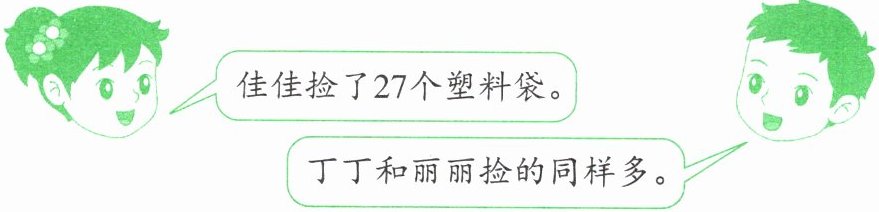 佳佳捡了27个塑料袋。
丁丁和丽丽捡的同样多。